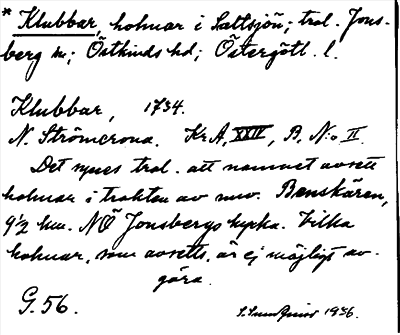 * Klubbar, holmar i Saltsjön; trol. Jons-
berg sn; Östkinds hd; Östergötl. l.
Klubbar, 1734.
N. Strömcrona. Kr A, XXIV, B, N:o II.
Det synes trol. att namnet avsett
holmar i trakten av nuv. Benskären,
9½ km. NÖ Jonsbergs kyrka. Vilka
holmar, som avsetts, är ej möjligt av-
göra.
G. 56.
S. Sundqvist 1936.